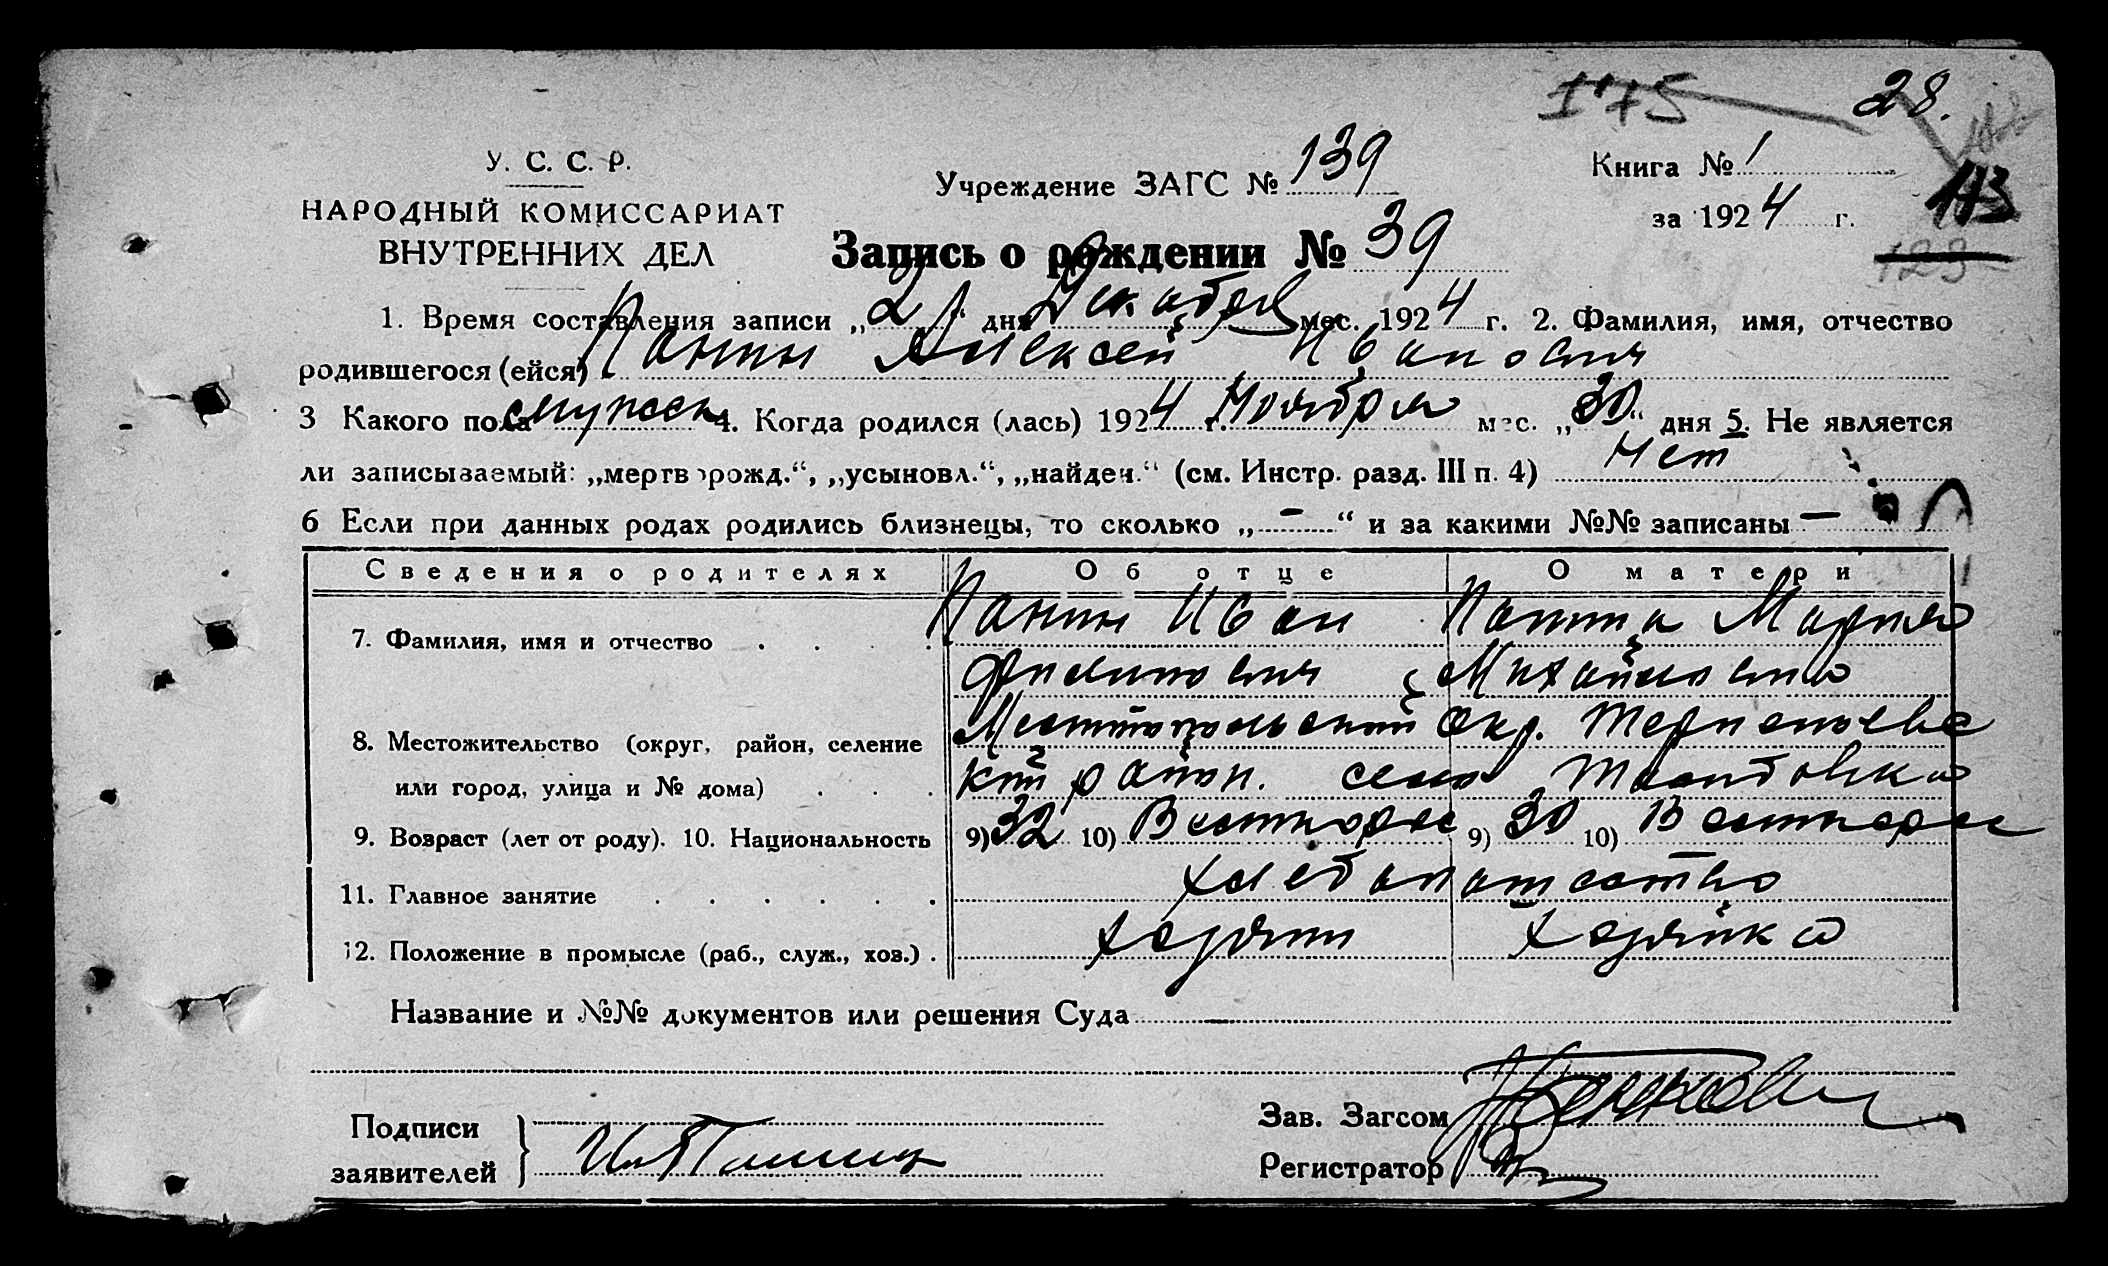 175 28.
У. С. С. Р.
НАРОДНЫЙ КОМИССАРИАТ
ВНУТРЕННИХ ДЕЛ
Учреждение ЗАГС № 139
Книга № 1
за 1924 г.
113
123
Запись о рождении № 39
1. Время составления записи „2“ дня Декабря мес. 1924 г. 2. Фамилия, имя, отчество
родившегося (ейся) Панин Алексей Иванович
3 Какого пола мужск 4. Когда родился (лась) 1924 г. Ноября мес. „30“ дня 5. Не является
ли записываемый: „мертворожд.“, „усыновл.“, „найден.“ (см. Инстр. разд. III п. 4) Нет
6 Если при данных родах родились близнецы, то сколько „-“ и за какими №№ записаны —
Сведения о родителях Об отце О матери
7. Фамилия, имя и отчество Панин Иван Панина Мария
Филипович Михайловна
8. Местожительство (округ, район, селение окр.
или город, улица и № дома) район. село
9. Возраст (лет от роду). 10. Национальность 9) 32 10) 9) 30 10)
11. Главное занятие хлебопашество
12. Положение в промысле (раб., служ., хоз.) Хозяин Хозяйка
Название и №№ документов или решения Суда —
Подписи
заявителей
Зав. Загсом
Регистратор